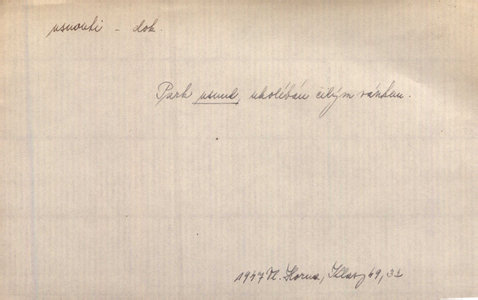 usnouti – dok.
Park usnul, ukolébán citým vánkem.
1947 Vl. Horna, Klasy 49, 32